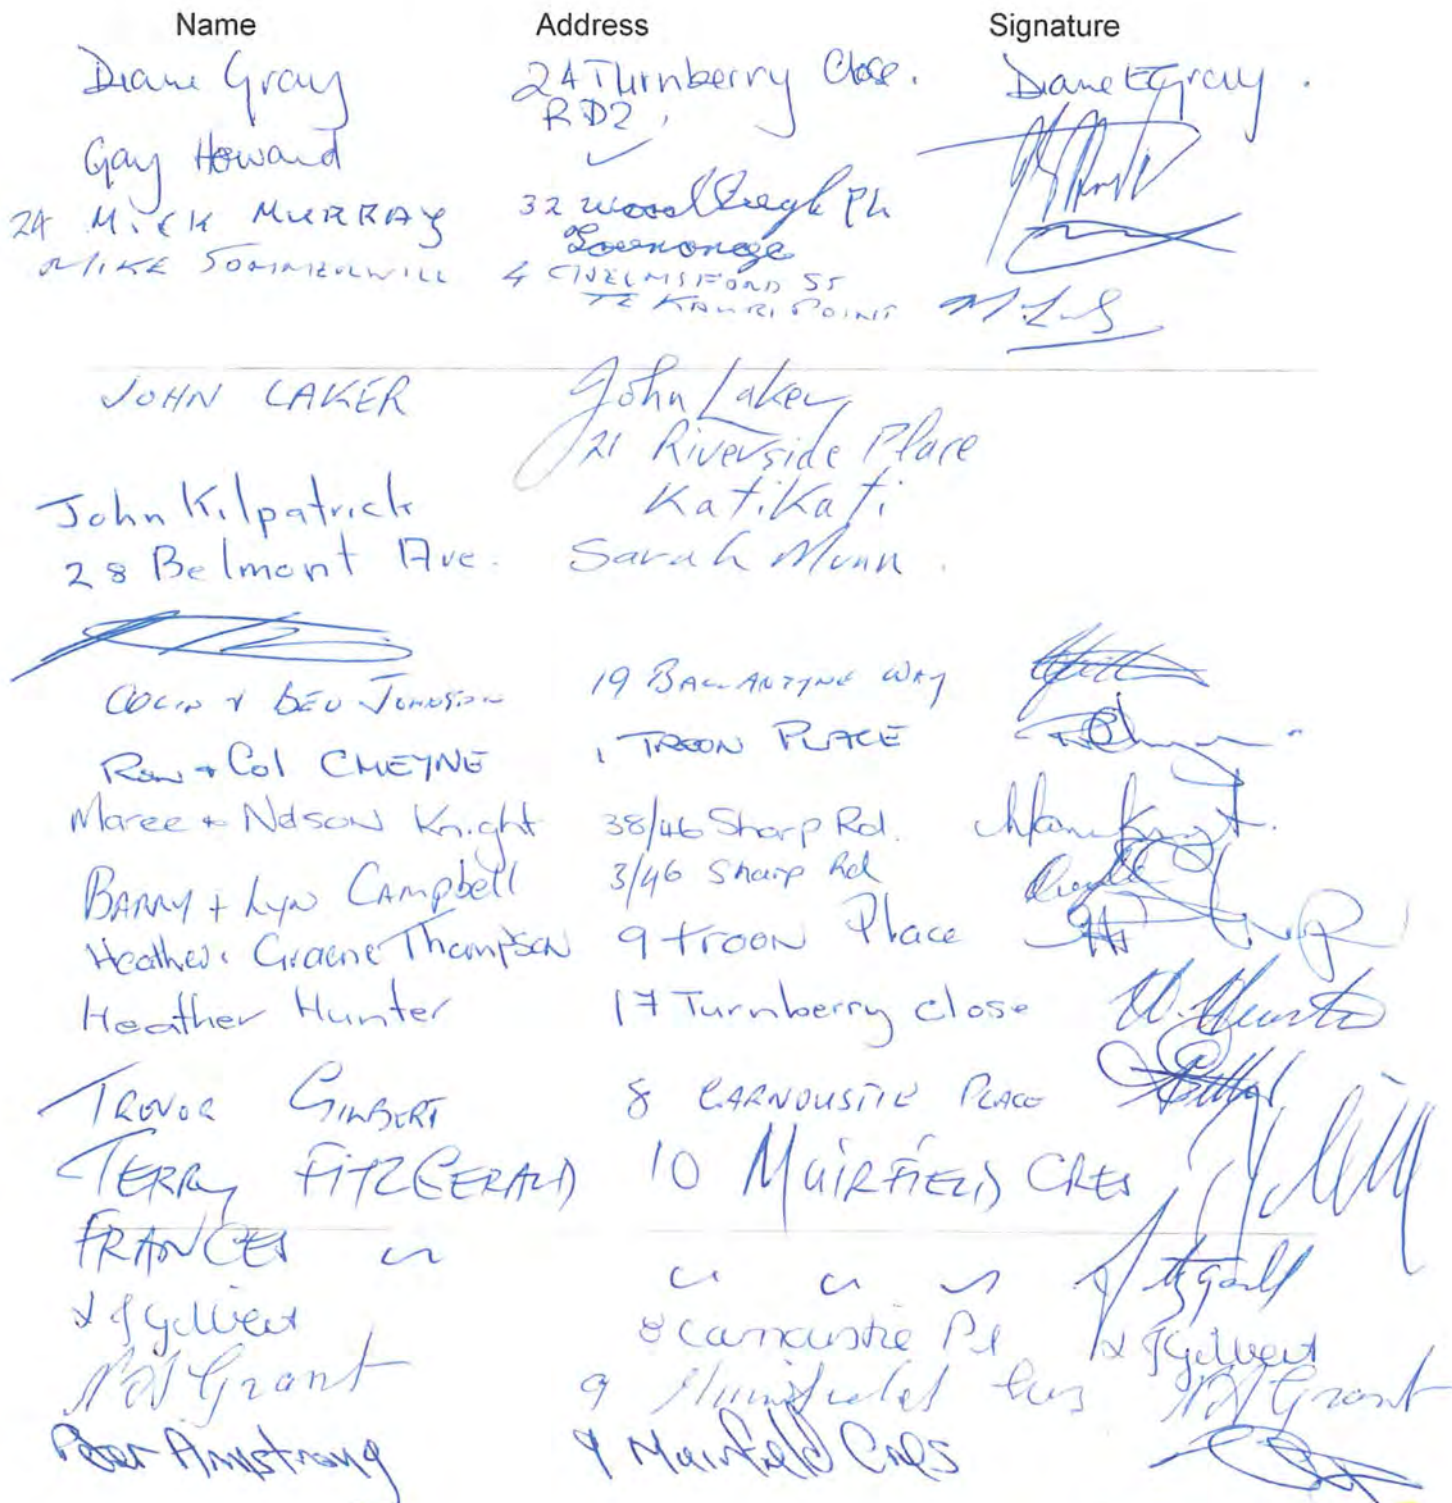 Name Address Signature
Diane Gray 24 Turnberry Close. Diane E Gray.
RD2,
Gay Howard
24 MICK MURRAY 32
MIKE SOMMERWILL 4 CHELMSFORD ST
TE KAURI POINT
JOHN LAKER John Laker
21 Riverside Place
Katikati
John Kilpatrick
28 Belmont Ave. Sarah Munn.
COLIN & BEV JOHNSTON 19 BALLANTYNE WAY
Row + Col CHEYNE 1 TROON PLACE
Maree & Nelson Knight 38/46 Sharp Rd.
BARRY + LYN CAMPBell 3/46 Sharp Rd
Heather & Graeme Thompson 9 troon Place
Heather Hunter 17 Turnberry close H. Hunter
TREVOR GILBERT 8 CARNOUSTIE PLACE
TERRY FITZGERALD 10 MUIRFIELD CRES
FRANCES " " " " Fitzgerald
J Gilbert 8 Carnoustie Pl J Gilbert
Grant 9 Muirfield Cres Grant
Peter Armstrong 9 Muirfield Cres